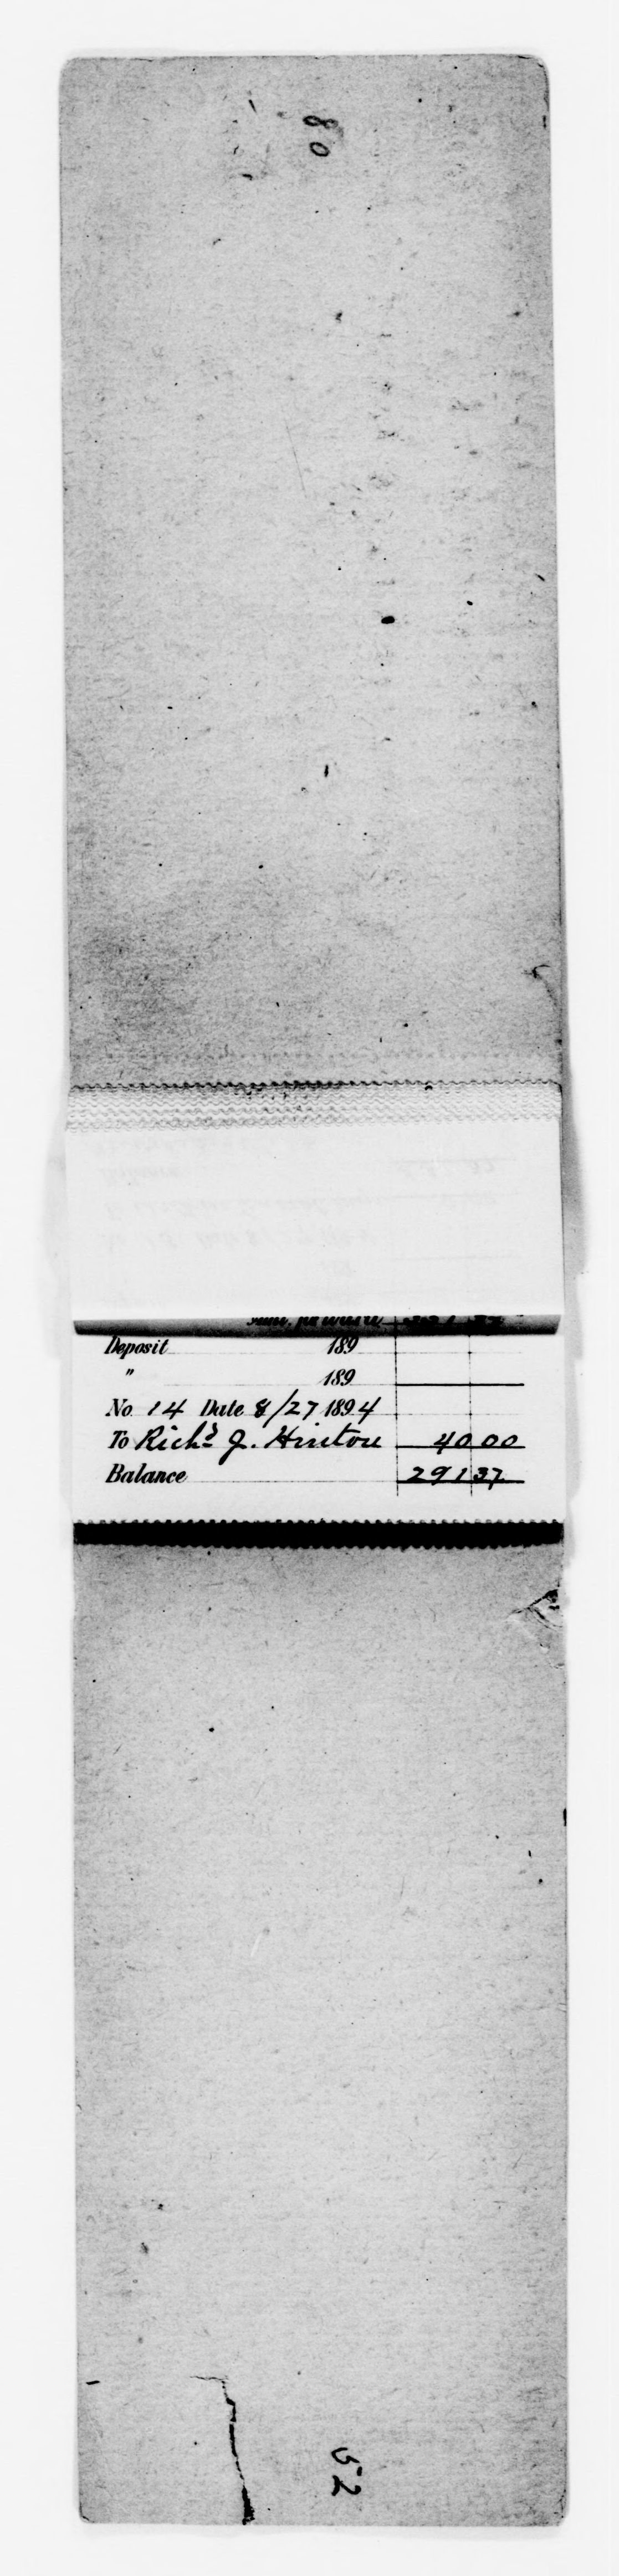 80
Deposit 189
" 189
No. 14 Date 8/27 1894
To Rich.d J. Hinton 40 00
Balance 291 37
52